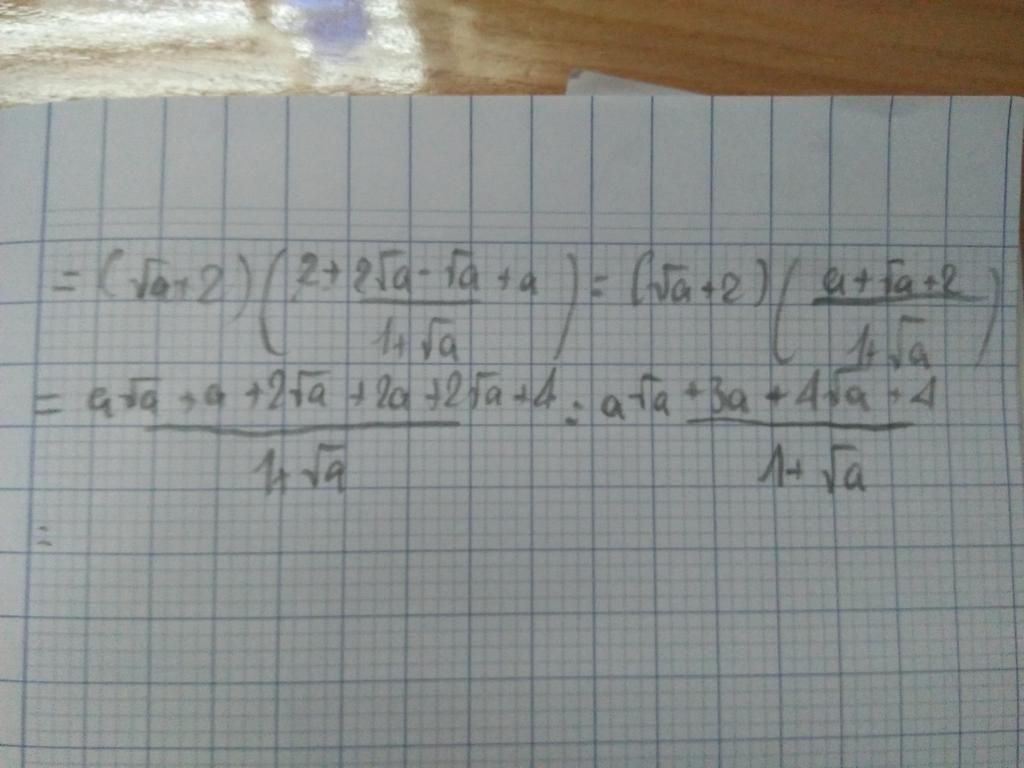 = (√a+2) ( 2+2√a-√a+a / 1+√a ) = (√a+2) ( a+√a+2 / 1+√a )
= a√a+a+2√a+2a+2√a+4 / 1+√a = a√a+3a+4√a+4 / 1+√a
=